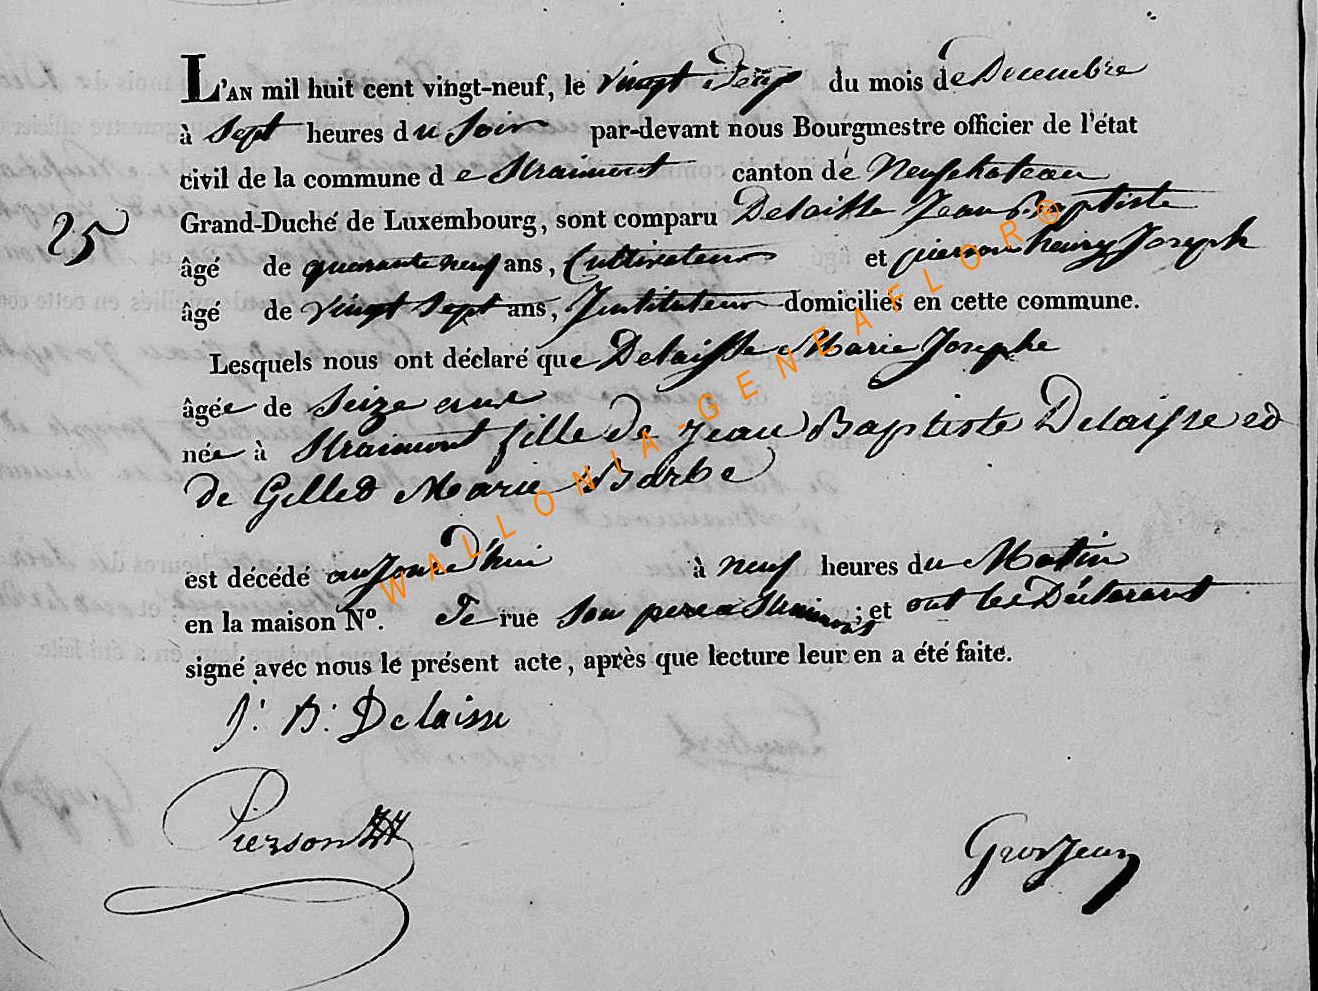 L'AN mil huit cent vingt-neuf, le vingt Deux du mois de Decembre
à Sept heures du Soir par-devant nous Bourgmestre officier de l'état
civil de la commune de Straimont canton dé Neufchateau
25
Grand-Duché de Luxembourg, sont comparu Delaisse Jean Baptiste
âgé de quarante neuf ans, Cultivateur et pierson henry Joseph
âgé de vingt Sept ans, Instituteur domiciliés en cette commune.
Lesquels nous ont déclaré que Delaisse Marie Josephe
âgée de Seize ans
née à Straimont fille de Jean Baptiste Delaisse et
de Gilles Marie Barbe
est décédé aujourd'hui à neuf heures du Matin
en la maison Nº. De rue Son pere a Straimont ; et ont les Déclarants
signé avec nous le présent acte, après que lecture leur en a été faite.
J: B: Delaisse
Pierson HJ
GrosJean
WALLONIA-GENEAFLOR®